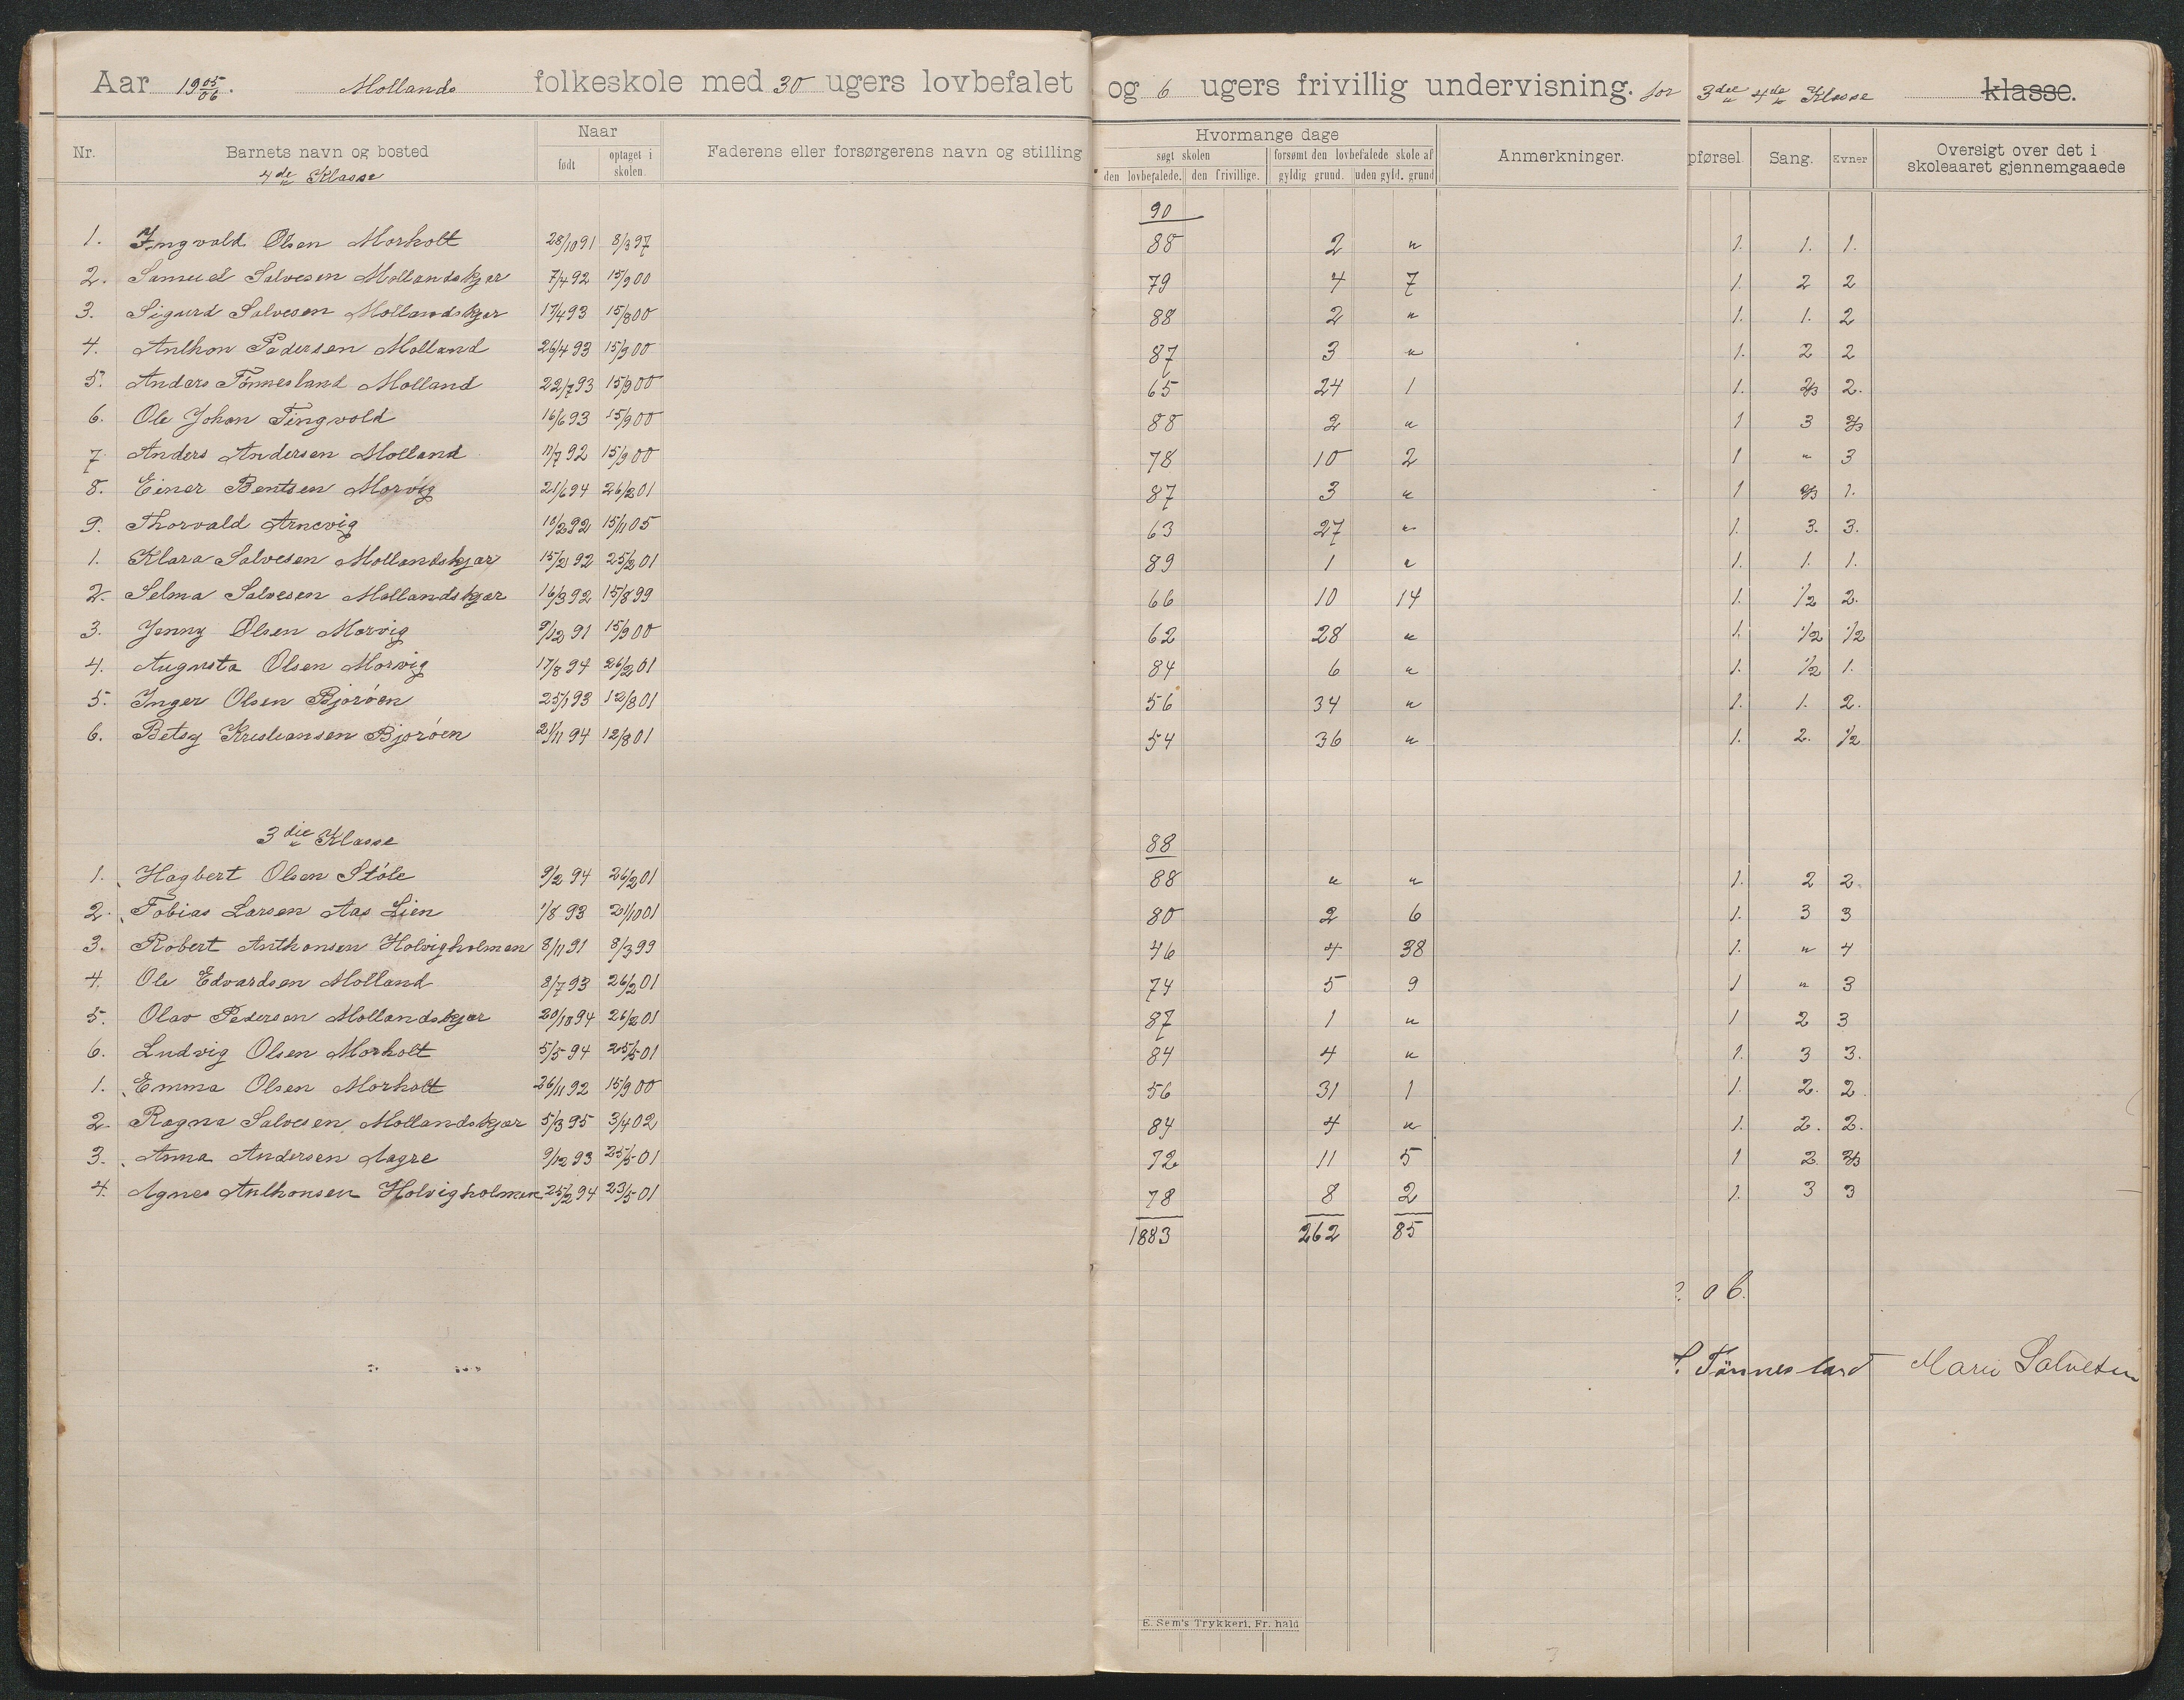 Aar 19 05/06. Mollands folkeskole med 30 ugers lovbefalet og 6 ugers frivillig undervisning. for 3die 4de Klasse klasse.
Nr. Barnets navn og bosted Naar født optaget i skolen. Faderens eller forsørgerens navn og stilling Hvormange dage søgt skolen den lovbefalede. den frivillige. forsømt den lovbefalede skole af gyldig grund. uden gyld. grund Anmerkninger. pførsel. Sang. Evner Oversigt over det i skoleaaret gjennemgaaede
4de Klasse
90
1. Ingvald Olsen Morholt 28/10 91 8/3 97 88 2 " 1. 1. 1.
2. Samuel Salvesen Mollandskjær 7/4 92 15/9 00 79 4 7 1. 2 2
3. Sigurd Salvesen Mollandskjær 17/4 93 15/8 00 88 2 " 1. 1. 2
4. Anthon Pedersen Molland 26/4 93 15/9 00 87 3 " 1. 2 2
5. Anders Tønnesland Molland 22/7 93 15/9 00 65 24 1 1. 2/3 2.
6. Ole Johan Tingvold 16/6 93 15/9 00 88 2 " 1 3 2/3
7. Anders Andersen Molland 11/7 92 15/9 00 78 10 2 1 " 3
8. Einar Bentsen Morvig 21/6 94 26/2 01 87 3 " 1 2/3 1.
9. Thorvald Arnevig 10/2 92 15/11 05 63 27 " 1. 3. 3.
1. Klara Salvesen Mollandskjær 15/2 92 25/2 01 89 1 " 1. 1. 1.
2. Selma Salvesen Mollandskjær 16/3 92 15/8 99 66 10 14 1. 1/2 2.
3. Jenny Olsen Morvig 9/12 91 15/9 00 62 28 " 1. 1/2 1/2
4. Augusta Olsen Morvig 17/8 94 26/2 01 84 6 " 1. 1/2 1.
5. Inger Olsen Bjorøen 25/1 93 12/8 01 56 34 " 1. 1. 2.
6. Betsy Kristiansen Bjorøen 21/11 94 12/8 01 54 36 " 1. 2. 1/2
3die Klasse 88
1. Hagbert Olsen Støle 9/2 94 26/2 01 88 " " 1. 2 2.
2. Tobias Larsen Aas Lien 1/8 93 21/10 01 80 2 6 1. 3 3
3. Robert Anthonsen Holvigholmen 8/11 91 8/3 99 46 4 38 1. " 4
4. Ole Edvardsen Molland 8/7 93 26/2 01 74 5 9 1 " 3
5. Olav Pedersen Mollandskjær 20/10 94 26/2 01 87 1 " 1 2 3
6. Ludvig Olsen Morholt 5/5 94 25/5 01 84 4 " 1. 3 3.
1. Emma Olsen Morholt 26/11 92 15/9 00 56 31 1 1. 2. 2.
2. Ragna Salvesen Mollandskjær 5/3 95 3/4 02 84 4 " 1. 2. 2.
3. Anna Andersen Aagre 9/12 93 25/5 01 72 11 5 1 2 2/3
4. Agnes Anthonsen Holvigholmen 25/2 94 23/5 01 78 8 2 1. 3 3
1883 262 85
06.
Tønnesland Marie Salvesen
E. Sem's Trykkeri, Fr. hald